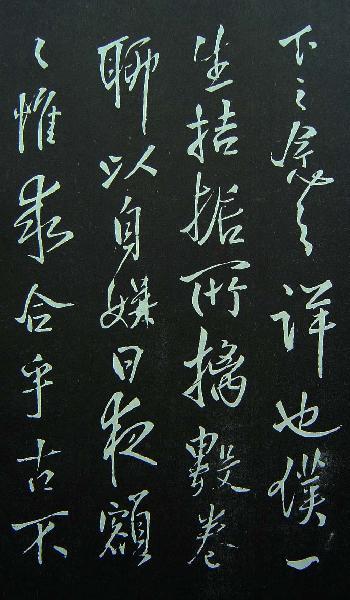 之詳也僕一
生拮据所摛數卷
聊以自娛日夜額
々惟求合乎古不